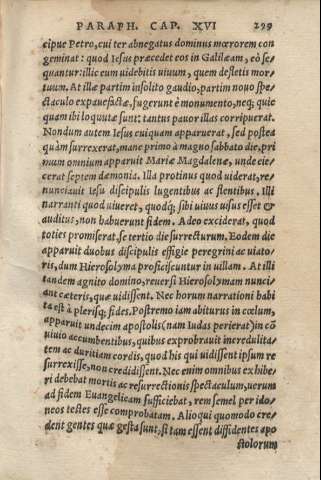 PARAPH. CAP. XVI 299
cipue Petro, cui ter abnegatus dominus mœrorem con
geminat: quod Iesus præcedet eos in Galilæam, eò se-
quantur: illic eum uidebitis uiuum, quem defletis mor-
tuum. At illæ partim insolito gaudio, partim nouo spe-
ctaculo expauefactæ, fugerunt è monumento, neq; quic
quam ibi loquutæ sunt: tantus pauor illas corripuerat.
Nondum autem Iesus cuiquam apparuerat, sed postea
quàm surrexerat, mane primo à magno sabbato die, pri
mum omnium apparuit Mariæ Magdalenæ, unde eie-
cerat septem dæmonia. Illa protinus quod uiderat, re-
nunciauit Iesu discipulis lugentibus ac flentibus. Illi
narranti quod uiueret, quodq; sibi uiuus uisus esset &
auditus, non habuerunt fidem. Adeo exciderat, quod
toties promiserat, se tertio die surrecturum. Eodem die
apparuit duobus discipulis effigie peregrini ac uiato-
ris, dum Hierosolyma proficiscuntur in uillam. At illi
tandem agnito domino, reuersi Hierosolymam nunci-
ant cæteris, quæ uidissent. Nec horum narrationi habi
ta est à plerisq; fides. Postremo iam abiturus in cœlum,
apparuit undecim apostolis (nam Iudas perierat) in cõ
uiuio accumbentibus, quibus exprobrauit incredulita-
tem ac duritiam cordis, quod his qui uidissent ipsum re
surrexisse, non credidissent. Nec enim omnibus exhibe
ri debebat mortis ac resurrectionis spectaculum, uerum
ad fidem Euangelicam sufficiebat, rem semel per ido-
neos testes esse comprobatam. Alioqui quomodo cre-
dent gentes quæ gesta sunt, si tam essent diffidentes apo
stolorum